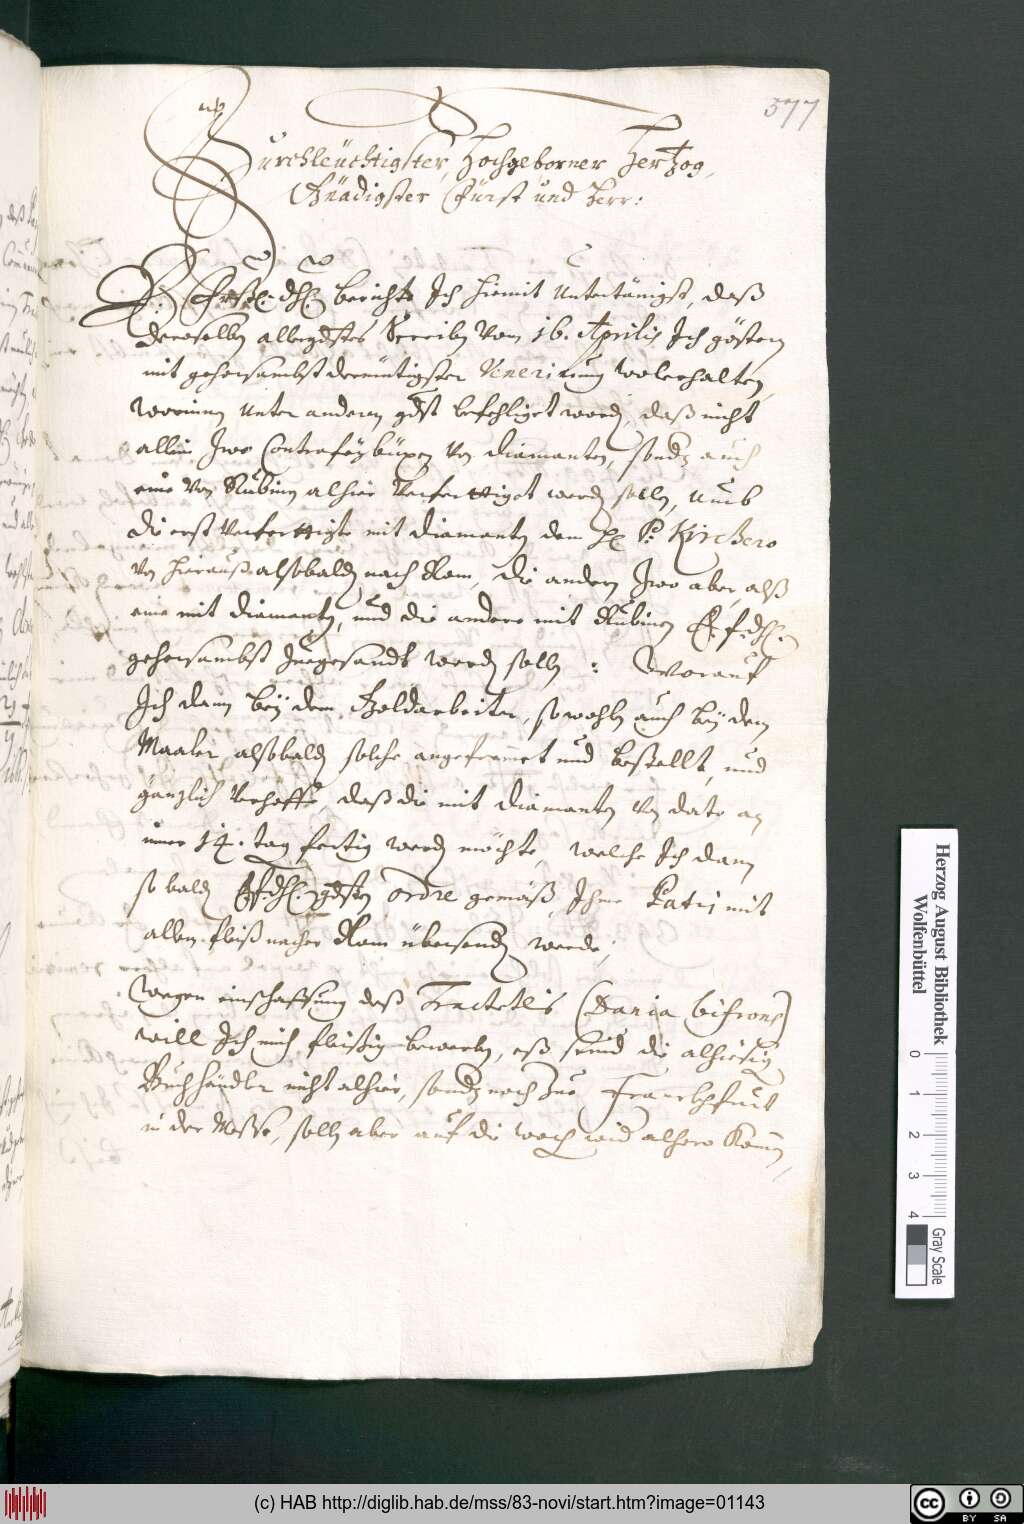 577
Durchleüchtigster, Hochgeborner Hertzog,
Gnädigster Fürst und Herr:
E: Fürstl: dhl: berichte Ich hiemit Untertänigst, daß
deroselben allergdstes Schreiben vom 16. Aprilis Ich göstern
mit gehorsambst demütigster Venerirung wolerhalten,
worinnen unter anderen gdst befehliget worden, daß nicht
allein Zwo Contrafeybüxen von Diamanten, sondern auch
eine von Rubinen alhier Verferttiget werden sollen, unnd
die erst Verferttigte mit Diamanten dem H: P: Kirchero
von hierauß alsobalden nach Rom, die anderen Zwo aber, alß
eine mit Diamanten, und die andere mit Rubinen E: f: dhl:
gehorsambst Zuegesandt werden sollen: Worauf
Ich dann beÿ dem Goldarbeiter, sowohln auch beÿ dem
Maaler, alsobalden solche angefrembt und bestellt, und
gänzlich verhoffe, daß die mit Diamanten von dato an
inner 14. tag fertig werden möchte, welche Ich dann
so balden E: f: dhl: gdsten ordre gemäß, Ihme Patri mit
allem fleiß nacher Rom übersenden werde,
Wegen einschaffung deß Tractetlis (Dania bifrons)
will Ich mich fleißig bewerben, eß seind die alhiesigen
Buchhändler nicht alhier, sondern noch Zue Franckhfurt
in der Messe, sollen aber auf die wochen wid alhero Komen,
Herzog August Bibliothek
Wolfenbüttel
0 1 2 3 4
Gray Scale
(c) HAB http://diglib.hab.de/mss/83-novi/start.htm?image=01143
cc BY SA